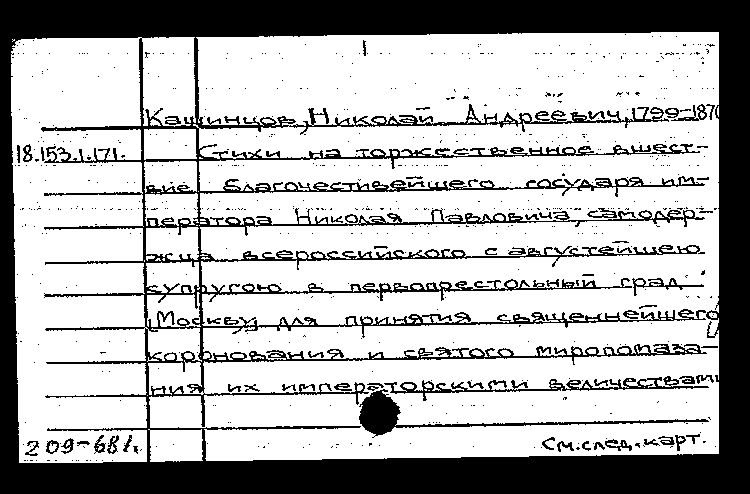 Кашинцов, Николай Андреевич, 1799-1870
18.153.1.171. Стихи на торжественное вшест-
вие благочестивейшего государя им-
ператора Николая Павловича, самодер-
жца всероссийского с августейшею
супругою в первопрестольный град
[Москву] для принятия священнейшего
коронования и святого миропомаза-
ния их императорскими величествами
209-681.
См.след.карт.